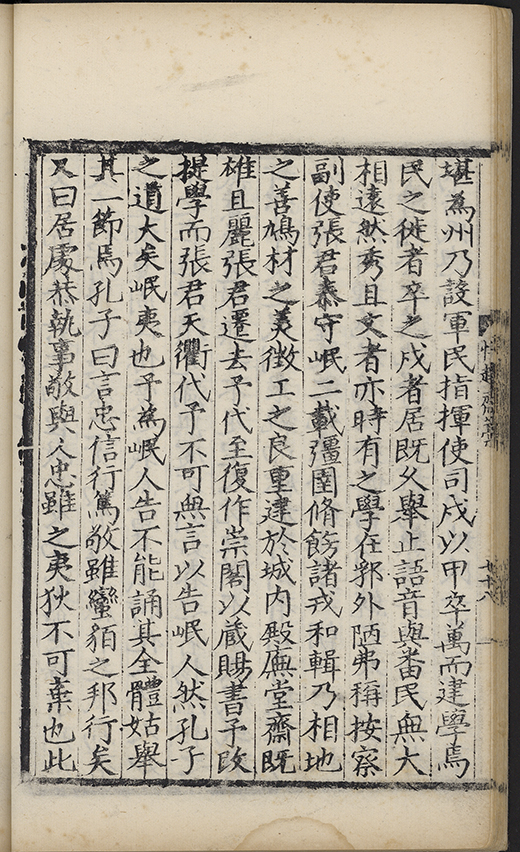 堪為州乃設軍民指揮使司戍以甲卒萬而建學焉
民之徙者卒之戍者居既久舉止語音與番民無大
相遠然秀且文者亦時有之學在郛外陋弗稱按察
副使張君泰守岷二載彊圉脩飭諸戎和輯乃相地
之善鳩材之美徵工之良重建於城內殿廡堂齋既
雄且麗張君遷去予代至復作崇閣以藏賜書予改
提學而張君天衢代予不可無言以告岷人然孔子
之道大矣岷夷也予為岷人告不能誦其全體姑舉
其一節焉孔子曰言忠信行篤敬雖蠻貊之邦行矣
又曰居處恭執事敬與人忠雖之夷狄不可棄也此
七十八